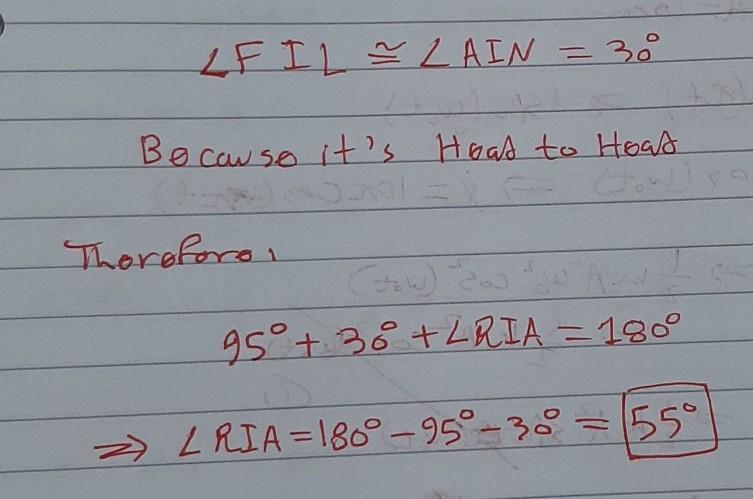 ∠FIL ≅ ∠AIN = 30°
Because it's Head to Head
Therefore,
95° + 30° + ∠RIA = 180°
⇒ ∠RIA = 180° - 95° - 30° = 55°